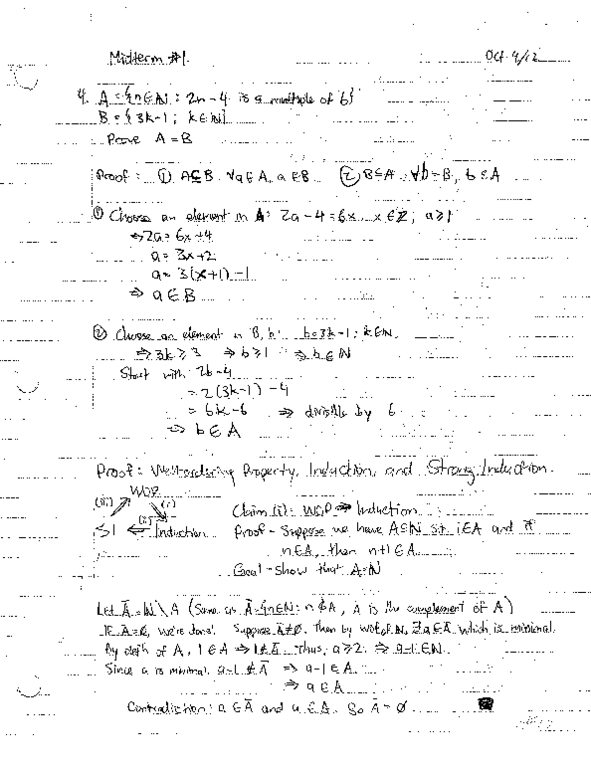 Midterm #1. Oct. 4/12
4. A = {n∈ℕ : 2n-4 is a multiple of 6}
B = {3k-1 ; k∈ℕ}
Prove A = B
Proof : ① A⊆B ∀a∈A, a∈B ② B⊆A ∀b∈B, b∈A
① Choose an element in A: 2a-4=6x x∈ℤ; a≥1
⇔ 2a = 6x+4
a = 3x+2
a = 3(x+1)-1
⇒ a∈B
② Choose an element in B, b: b=3k-1; k∈ℕ.
⇒ 3k≥3 ⇒ b≥1 ⇒ b∈ℕ
Start with 2b-4
= 2(3k-1)-4
= 6k-6 ⇒ divisible by 6
⇒ b∈A
Proof: Well-ordering Property, Induction, and Strong Induction.
WOP
(iii) (i) Claim (i): WOP ⇒ Induction
SI ⇐ (ii) Induction Proof - Suppose we have A⊆ℕ s.t. 1∈A and if
n∈A, then n+1∈A.
Goal - show that A=ℕ
Let Ā = ℕ\A (Same as Ā={n∈ℕ : n∉A, A is the complement of A)
If Ā=∅, we're done. Suppose Ā≠∅, then by WOP of ℕ, ∃a∈Ā which is minimal.
By defn of A, 1∈A ⇒ 1∉Ā. Thus, a≥2. ⇒ a-1∈ℕ.
Since a is minimal, a-1∉Ā ⇒ a-1∈A.
⇒ a∈A
Contradiction: a∈Ā and a∈A. So Ā=∅